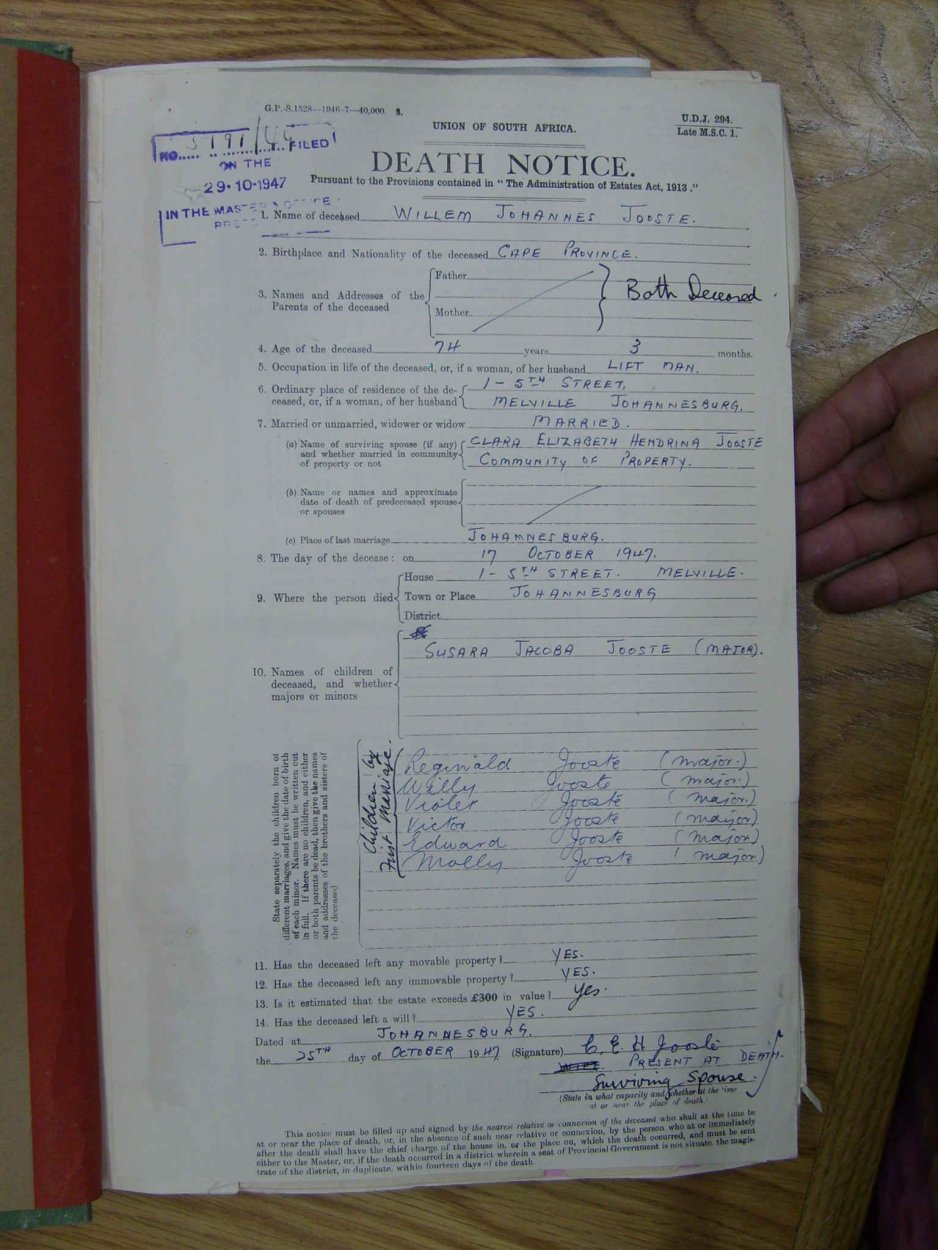 G.P.-S.1528—1946-7—40,000. S.
U.D.J. 294.
Late M.S.C. 1.
UNION OF SOUTH AFRICA.
NO..... 5191/ FILED
ON THE
29·10-1947
IN THE MASTER'S OFFICE
DEATH NOTICE.
Pursuant to the Provisions contained in "The Administration of Estates Act, 1913."
1. Name of deceased WILLEM JOHANNES JOOSTE.
2. Birthplace and Nationality of the deceased CAPE PROVINCE.
3. Names and Addresses of the Parents of the deceased
Father
Mother
Both Deceased.
4. Age of the deceased 74 years 3 months.
5. Occupation in life of the deceased, or, if a woman, of her husband LIFT MAN.
6. Ordinary place of residence of the de-
ceased, or, if a woman, of her husband
1 - 5TH STREET,
MELVILLE JOHANNESBURG.
7. Married or unmarried, widower or widow MARRIED.
(a) Name of surviving spouse (if any)
and whether married in community
of property or not
CLARA ELIZABETH HENDRINA JOOSTE
COMMUNITY OF PROPERTY.
(b) Name or names and approximate
date of death of predeceased spouse
or spouses
(c) Place of last marriage JOHANNESBURG.
8. The day of the decease: on 17 OCTOBER 1947.
9. Where the person died
House 1 - 5TH STREET. MELVILLE.
Town or Place JOHANNESBURG
District
10. Names of children of
deceased, and whether
majors or minors
SUSARA JACOBA JOOSTE (MAJOR).
State separately the children born of
different marriages, and give the date of birth
of each minor. Names must be written out
in full. If there are no children, and either
or both parents be dead, then give the names
and addresses of the brothers and sisters of
the deceased
Children by
First Marriage.
Reginald Jooste (major.)
Willy Jooste (major.)
Violet Jooste (major.)
Victor Jooste (major)
Edward Jooste (major)
Molly Jooste (major)
11. Has the deceased left any movable property? YES.
12. Has the deceased left any immovable property? YES.
13. Is it estimated that the estate exceeds £300 in value? Yes.
14. Has the deceased left a will? YES.
Dated at JOHANNESBURG.
the 25TH day of OCTOBER 1947. (Signature) C. E H Jooste
WIFE. PRESENT AT DEATH.
Surviving Spouse.
(State in what capacity and whether at the time
at or near the place of death.
This notice must be filled up and signed by the nearest relative or connexion of the deceased who shall at the time be
at or near the place of death, or, in the absence of such near relative or connexion, by the person who at or immediately
after the death shall have the chief charge of the house in, or the place on, which the death occurred, and must be sent
either to the Master, or, if the death occurred in a district wherein a seat of Provincial Government is not situate, the magis-
trate of the district, in duplicate, within fourteen days of the death